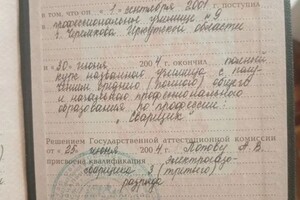 в том, что он « 1 » сентября 2001 г. поступил
в профессиональное училище №9
г. Черемхова Иркутской области
и « 30 » июня 2004 г. окончил полный
курс названного училища с полу-
чением среднего (полного) общего
и начального профессионального
образования по профессии:
"Сварщик"
Решением Государственной аттестационной комиссии
от « 25 » июня 2004 г. Попову А. В.
присвоена квалификация Электрогазо-
сварщика 3 (третьего)
разряда